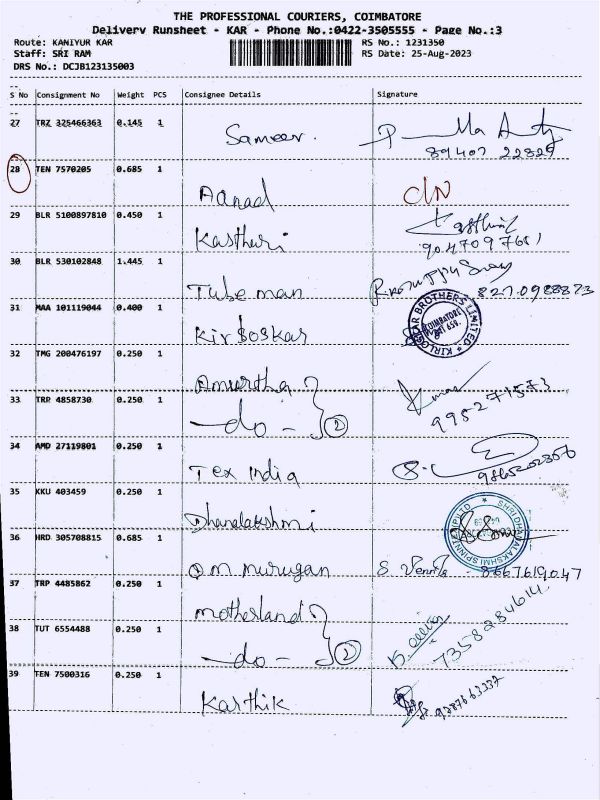 THE PROFESSIONAL COURIERS, COIMBATORE
Delivery Runsheet - KAR - Phone No.:0422-3505555 - Page No.:3
Route: KANIYUR KAR RS No.: 1231350
Staff: SRI RAM RS Date: 25-Aug-2023
DRS No.: DCJB123135003
S No Consignment No Weight PCS Consignee Details Signature
27 TRZ 325466363 0.145 1
Sameer. 89407 22829
28 TEN 7570205 0.685 1
Aanad
29 BLR 5100897810 0.450 1
Kasthuri 9047097681
30 BLR 530102848 1.445 1
Tube man 8270988873
31 MAA 101119044 0.400 1
Kirloskar KIRLOSKAR BROTHERS LIMITED COIMBATORE
32 TMG 200476197 0.250 1
Amirtha
33 TRP 4858730 0.250 1
-do- 2 9952771573
34 AMD 27119801 0.250 1
Tex India 9865202356
35 KKU 403459 0.250 1
Dhanalakshmi
36 HRD 305708815 0.685 1
OM Murugan 8667619047
37 TRP 4485862 0.250 1
Motherland
38 TUT 6554488 0.250 1
-do- 2 7358284614
39 TEN 7500316 0.250 1
Karthik